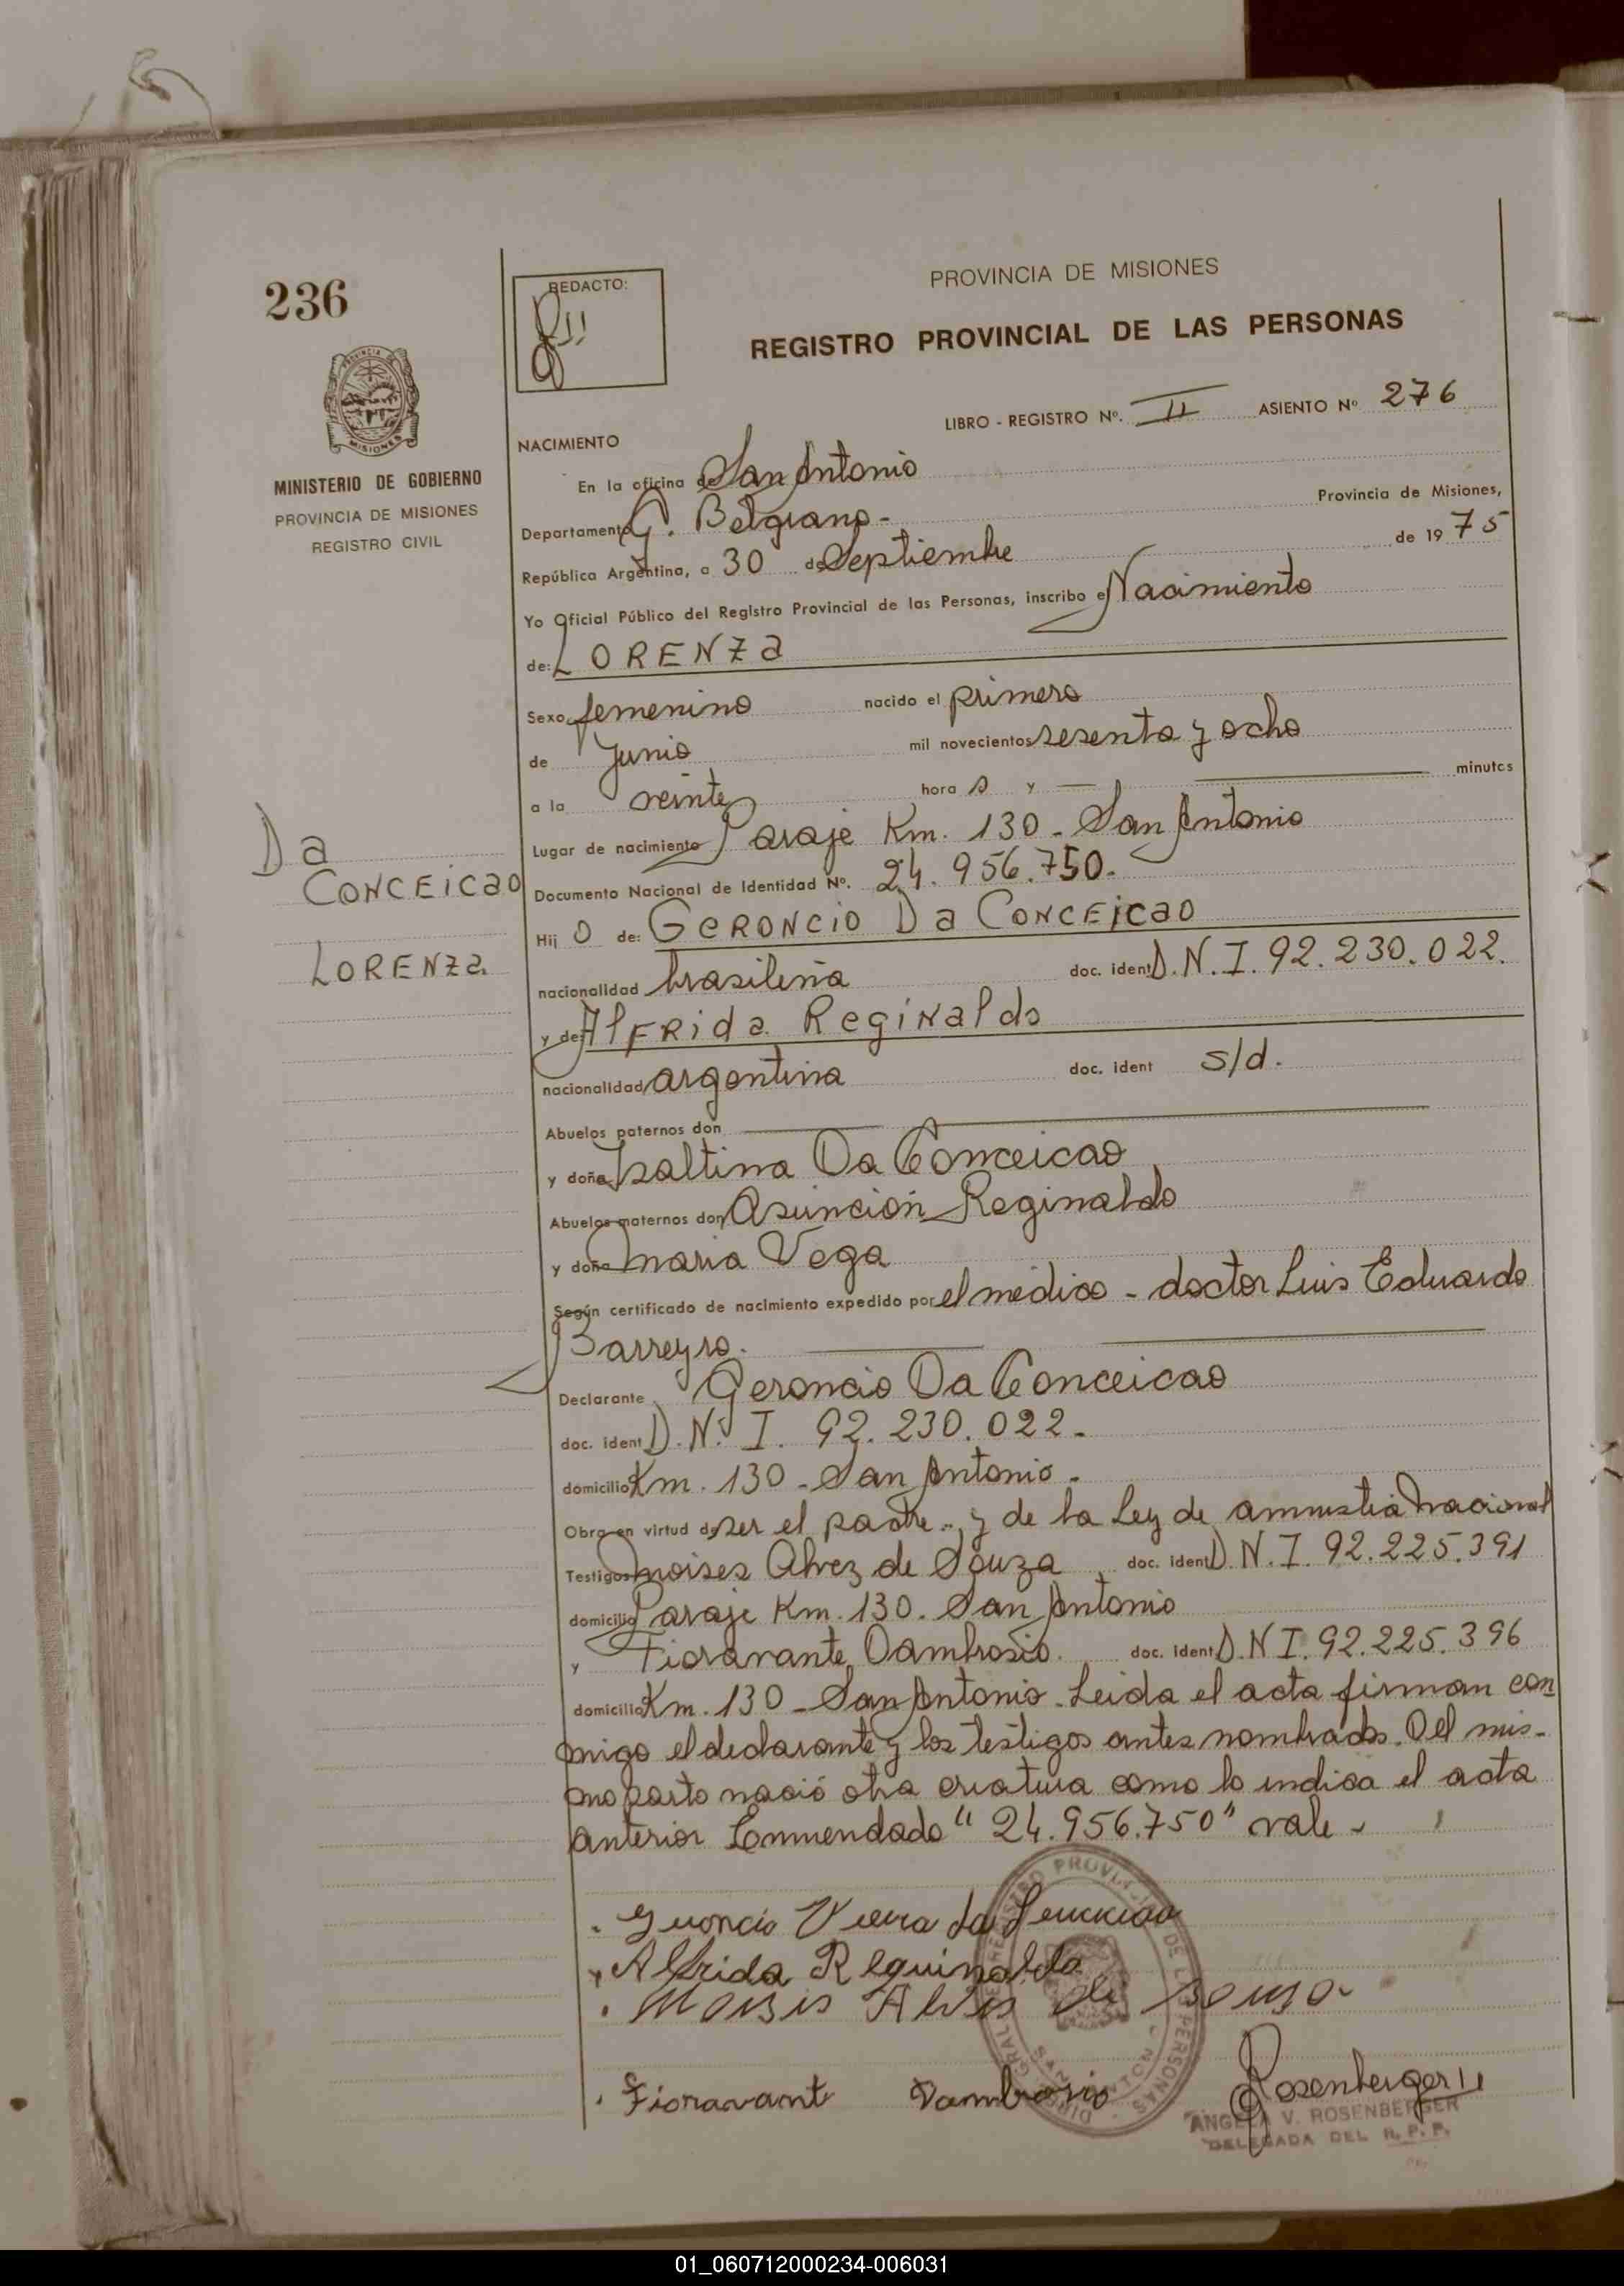 236
REDACTO:
PROVINCIA DE MISIONES
REGISTRO PROVINCIAL DE LAS PERSONAS
LIBRO - REGISTRO Nº. II ASIENTO Nº 276
MINISTERIO DE GOBIERNO
PROVINCIA DE MISIONES
REGISTRO CIVIL
NACIMIENTO
En la oficina de San Antonio
Departamento G. Belgrano - Provincia de Misiones,
República Argentina, a 30 de Septiembre de 1975
Yo Oficial Público del Registro Provincial de las Personas, inscribo el Nacimiento
de: LORENZa
Sexo femenino nacido el primero
de Junio mil novecientos sesenta y ocho
a la veinte hora s y — minutos
Lugar de nacimiento Paraje Km. 130 - San Antonio
Da
CONCEICao
LORENZa.
Documento Nacional de Identidad Nº. 24.956.750.
Hij o de: GERONCIO Da CONCEICao
nacionalidad brasileña doc. ident D.N.I. 92.230.022.
y de: AlFRida Reginaldo
nacionalidad argentina doc. ident s/d.
Abuelos paternos don
y doña Isaltina Da Conceicao
Abuelos maternos don Asunción Reginaldo
y doña Maria Vega
Según certificado de nacimiento expedido por el médico - doctor Luis Eduardo
Barreyro.
Declarante Geroncio Da Conceicao
doc. ident D.N.I. 92.230.022.
domicilio Km. 130 - San Antonio.
Obra en virtud de ser el padre - y de la Ley de amnistia nacional
Testigos Moises Alvez de Souza doc. ident D.N.I. 92.225.391
domicilio Paraje Km. 130. San Antonio
y Fioravante Dambrosio. doc. ident D.N.I. 92.225.396
domicilio Km. 130 - San Antonio. Leida el acta firman con
migo el declarante y los testigos antes nombrados. Del mis-
mo parto nació otra criatura como lo indica el acta
anterior Enmendado "24.956.750" vale -
Geroncio Vieira da
Alfrida Reguinaldo
Moisis Alves de Souso
Fioravant Dambrosio
Rosenberger
ANGELA V. ROSENBERGER
DELEGADA DEL R. P. P.
01_060712000234-006031